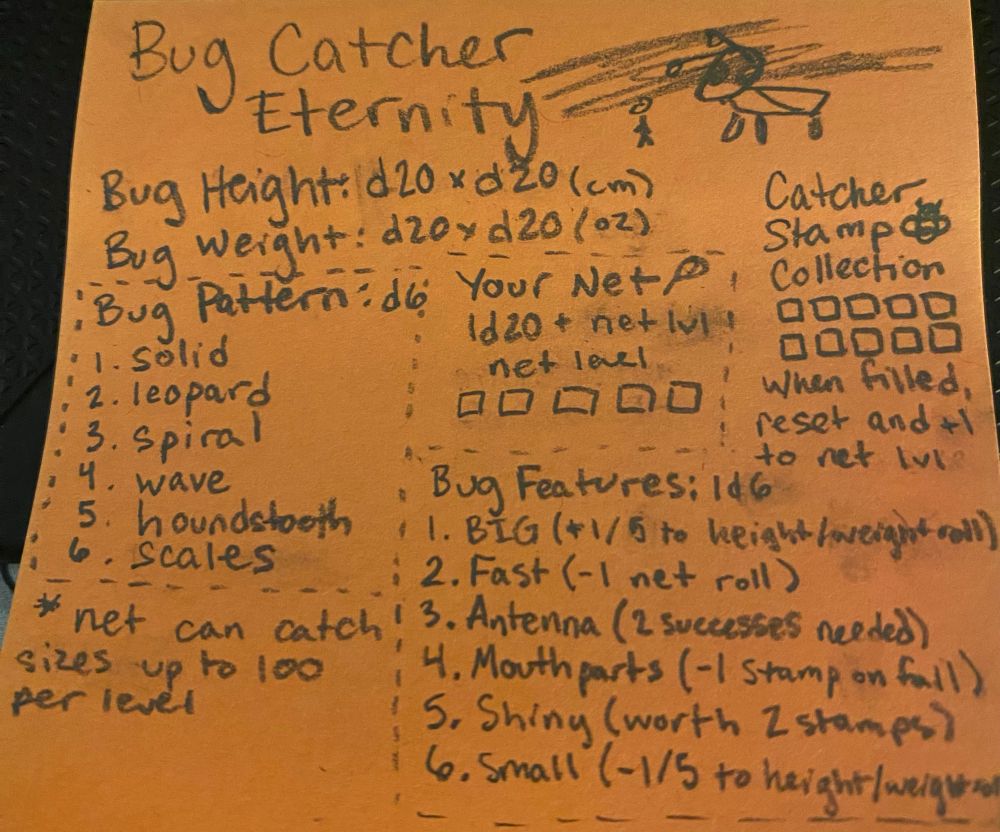 Bug Catcher
Eternity
Bug Height: d20 x d20 (cm)
Bug Weight: d20 x d20 (oz)
Bug Pattern: d6
1. solid
2. leopard
3. spiral
4. wave
5. houndstooth
6. scales
* net can catch
sizes up to 100
per level
Your Net
1d20 + net lvl
net level
Catcher
Stamp
Collection
when filled,
reset and +1
to net lvl
Bug Features: 1d6
1. BIG (+1/5 to height/weight roll)
2. Fast (-1 net roll)
3. Antenna (2 successes needed)
4. Mouthparts (-1 stamp on fail)
5. Shiny (worth 2 stamps)
6. Small (-1/5 to height/weight